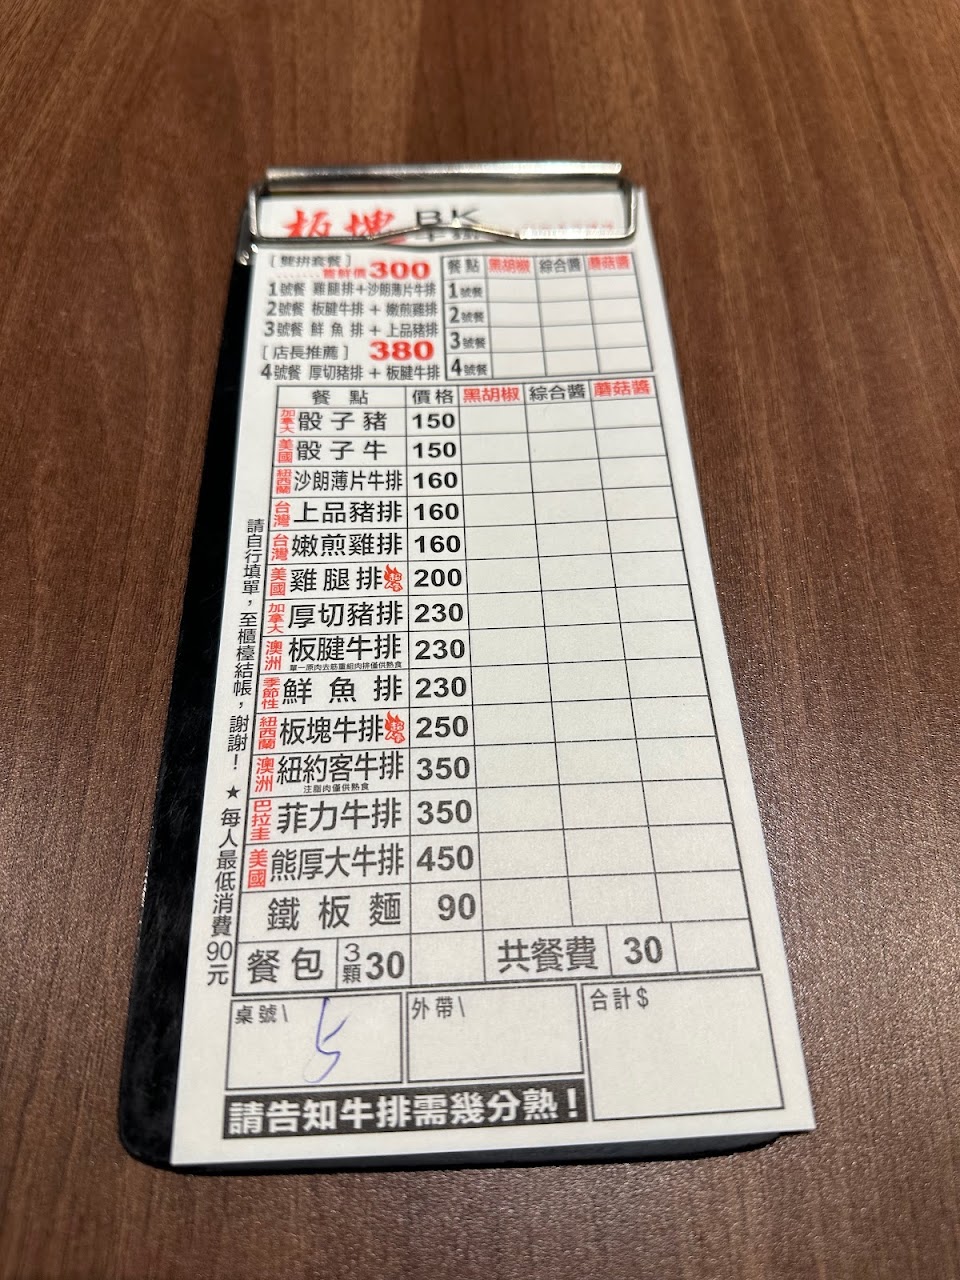 板塊 BK
[ 雙拼套餐 ]
........嘗鮮價300
1號餐 雞腿排+沙朗薄片牛排
2號餐 板腱牛排 + 嫩煎雞排
3號餐 鮮 魚 排 + 上品豬排
[ 店長推薦 ] 380
4號餐 厚切豬排 + 板腱牛排
餐 點 黑胡椒 綜合醬 蘑菇醬
1號餐
2號餐
3號餐
4號餐
餐 點 價格 黑胡椒 綜合醬 蘑菇醬
加拿大 骰子豬 150
美國 骰子牛 150
紐西蘭 沙朗薄片牛排 160
台灣 上品豬排 160
台灣 嫩煎雞排 160
美國 雞腿排 200
加拿大 厚切豬排 230
澳洲 板腱牛排 230
單一原肉去筋重組肉排僅供熟食
季節性 鮮魚排 230
紐西蘭 板塊牛排 250
澳洲 紐約客牛排 350
注脂肉僅供熟食
巴拉圭 菲力牛排 350
美國 熊厚大牛排 450
鐵板麵 90
餐包 3顆 30 共餐費 30
桌號\ 5 外帶\ 合計$
請告知牛排需幾分熟!
請自行填單,至櫃檯結帳,謝謝!★每人最低消費90元